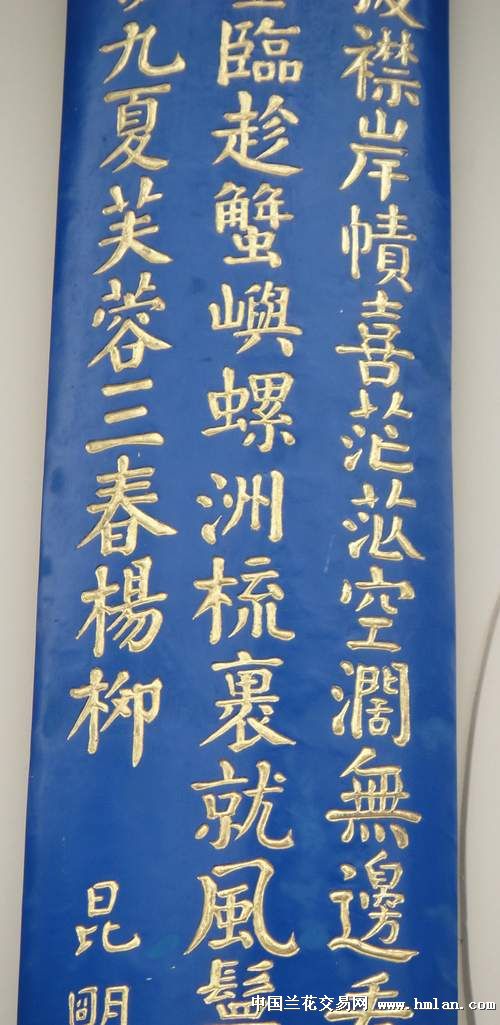 襟岸幘喜茫茫空濶無邊
臨趁蟹嶼螺洲梳裹就風鬟
九夏芙蓉三春楊柳
昆明
中国兰花交易网 www.hmlan.com